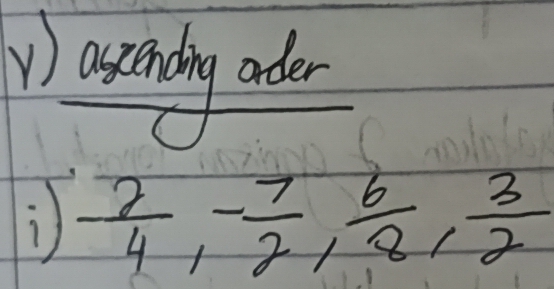 v) ascending order
i) -2/4, -7/2, 6/8, 3/2